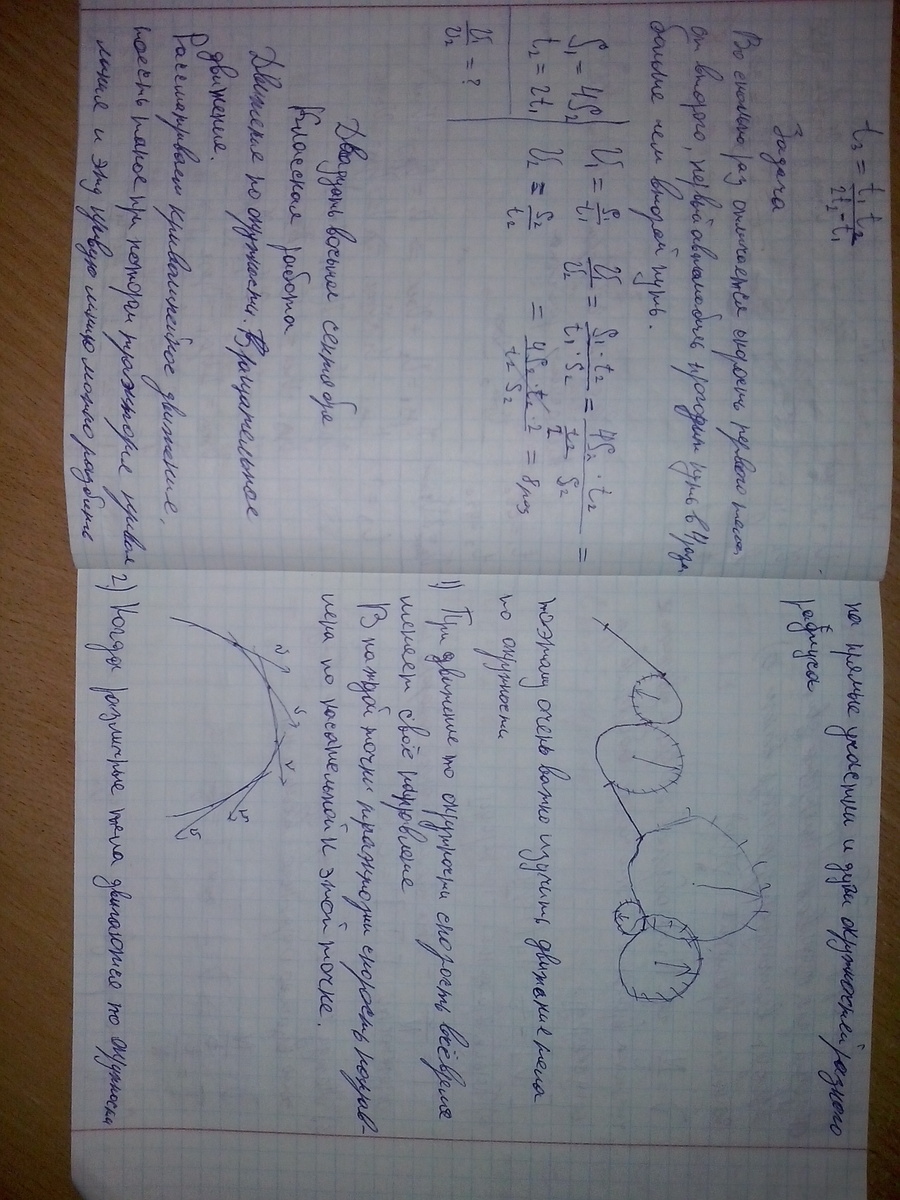 t₃ = t₁ t₂ / 2t₂ - t₁
Задача
Во сколько раз отличается скорость первого тела
от второго, первый автомобиль проходит путь в 4 раза
больше чем второй путь.
S₁ = 4S₂ | U₁ = S₁/t₁ U₁/U₂ = S₁·t₂/t₁·S₂ = 4S₂·t₂ / (t₂/2 · S₂) =
t₂ = 2t₁ | U₂ = S₂/t₂ = 4S₂·t₂·2 / t₂ S₂ = 8 раз
U₁/U₂ = ?
Двадцать восьмое сентября
Классная работа
Движение по окружности. Вращательное
движение.
Рассматриваем криволинейное движение,
тоесть такое при котором траектория кривая
линия и эту кривую линию можно разбить
на прямые участки и дуги окружностей разного
радиуса
поэтому очень важно изучить движение тела
по окружности
1) При движение по окружности скорость всё время
меняет своё направление
В каждой точки траектории скорость направ-
лена по касательной к этой точке.
υ υ υ υ υ
2) Когда различные тела двигаются по окружности